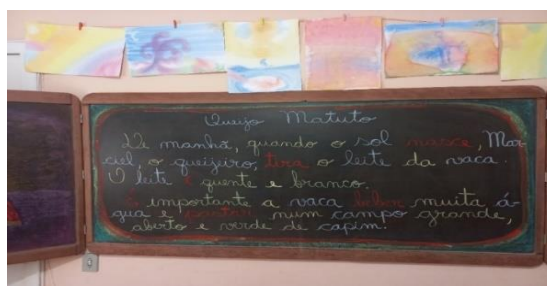 Queijo Matuto
De manhã, quando o sol nasce, Ma-
ciel, o queijeiro, tira o leite da vaca.
O leite é quente e branco.
É importante a vaca beber muita á-
gua e pastar num campo grande,
aberto e verde de capim.